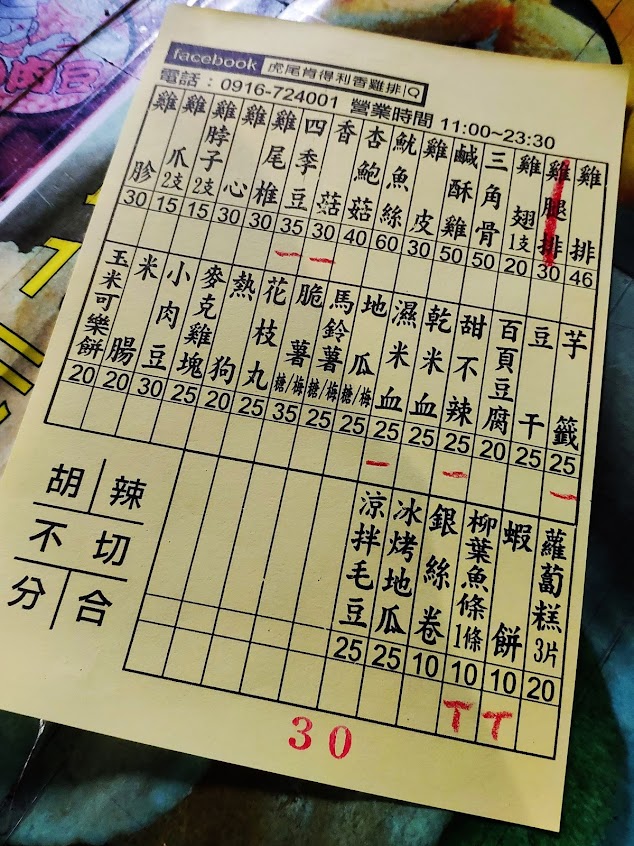 facebook 虎尾肯得利香雞排
電話：0916-724001 營業時間 11:00~23:30
雞排 46
雞腿排 30
雞翅1支 20
三角骨 50
鹹酥雞 50
雞皮 30
魷魚絲 60
杏鮑菇 40
香菇 30
四季豆 35
雞尾椎 30
雞心 30
雞脖子2支 15
雞爪2支 15
雞胗 30
一 一
芋籤 25
豆干 25
百頁豆腐 20
甜不辣 25
乾米血 25
濕米血 25
地瓜 糖/梅 25
馬鈴薯 糖/梅 25
脆薯 糖/梅 35
花枝丸 25
熱狗 20
麥克雞塊 25
小肉豆 30
米腸 20
玉米可樂餅 20
一 一 一
蘿蔔糕3片 20
蝦餅 10
柳葉魚條1條 10
銀絲卷 10
冰烤地瓜 25
涼拌毛豆 25
丅 丅
胡 辣
不 切
分 合
30